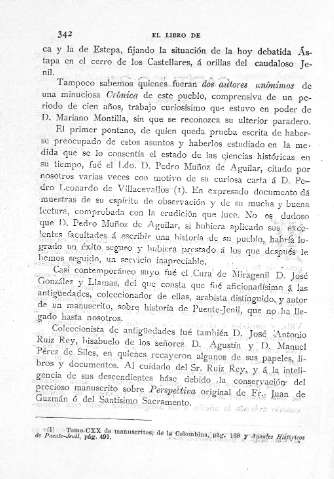 342 EL LIBRO DE
ca y la de Estepa, fijando la situación de la hoy debatida Ás-
tapa en el cerro de los Castellares, á orillas del caudaloso Je-
nil.
Tampoco sabemos quienes fueran dos autores anónimos de
una minuciosa Crónica de este pueblo, comprensiva de un pe-
riodo de cien años, trabajo curiosísimo que estuvo en poder de
D. Mariano Montilla, sin que se reconozca su ulterior paradero.
El primer pontano, de quien queda prueba escrita de haber-
se preocupado de estos asuntos y haberlos estudiado en la me-
dida que se lo consentía el estado de las ciencias históricas en
su tiempo, fué el Ldo. D. Pedro Muñoz de Aguilar, citado por
nosotros varias veces con motivo de su curiosa carta á D. Pe-
dro Leonardo de Villacevallos (1). En expresado documento dá
muestras de su espíritu de observación y de su mucha y buena
lectura, comprobada con la erudición que luce. No es dudoso
que D. Pedro Muñoz de Aguilar, si hubiera aplicado sus exce-
lentes facultades á escribir una historia de su pueblo, habría lo-
grado un éxito seguro y hubiera prestado á los que después le
hemos seguido, un servicio inapreciable.
Casi contemporáneo suyo fué el Cura de Miragenil D. José
González y Llamas, del que consta que fué aficionadísimo á las
antigüedades, coleccionador de ellas, arabista distinguido, y autor
de un manuscrito, sobre historia de Puente-Jenil, que no ha lle-
gado hasta nosotros.
Coleccionista de antigüedades fué también D. José Antonio
Ruiz Rey, bisabuelo de los señores D. Agustín y D. Manuel
Pérez de Siles, en quienes recayeron algunos de sus papeles, li-
bros y documentos. Al cuidado del Sr. Ruiz Rey, y á la inteli-
gencia de sus descendientes háse debido la conservación del
precioso manuscrito sobre Perspectiva original de Fr. Juan de
Guzmán ó del Santísimo Sacramento.
(1) Tomo CXX de manuscritos; de la Colombina, pág. 188 y Apuntes Históricos
de Puente-Jenil, pág. 491.